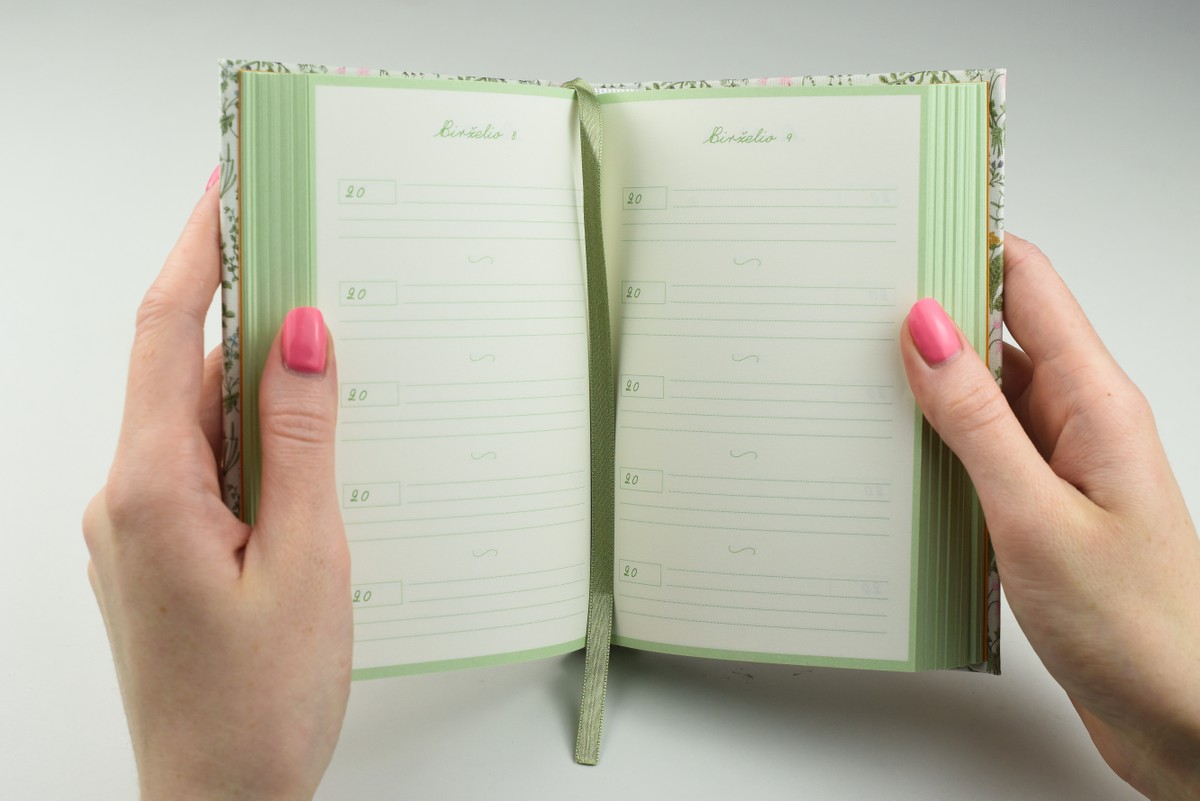 Birželio 8
20
20
20
20
20
Birželio 9
20
20
20
20
20